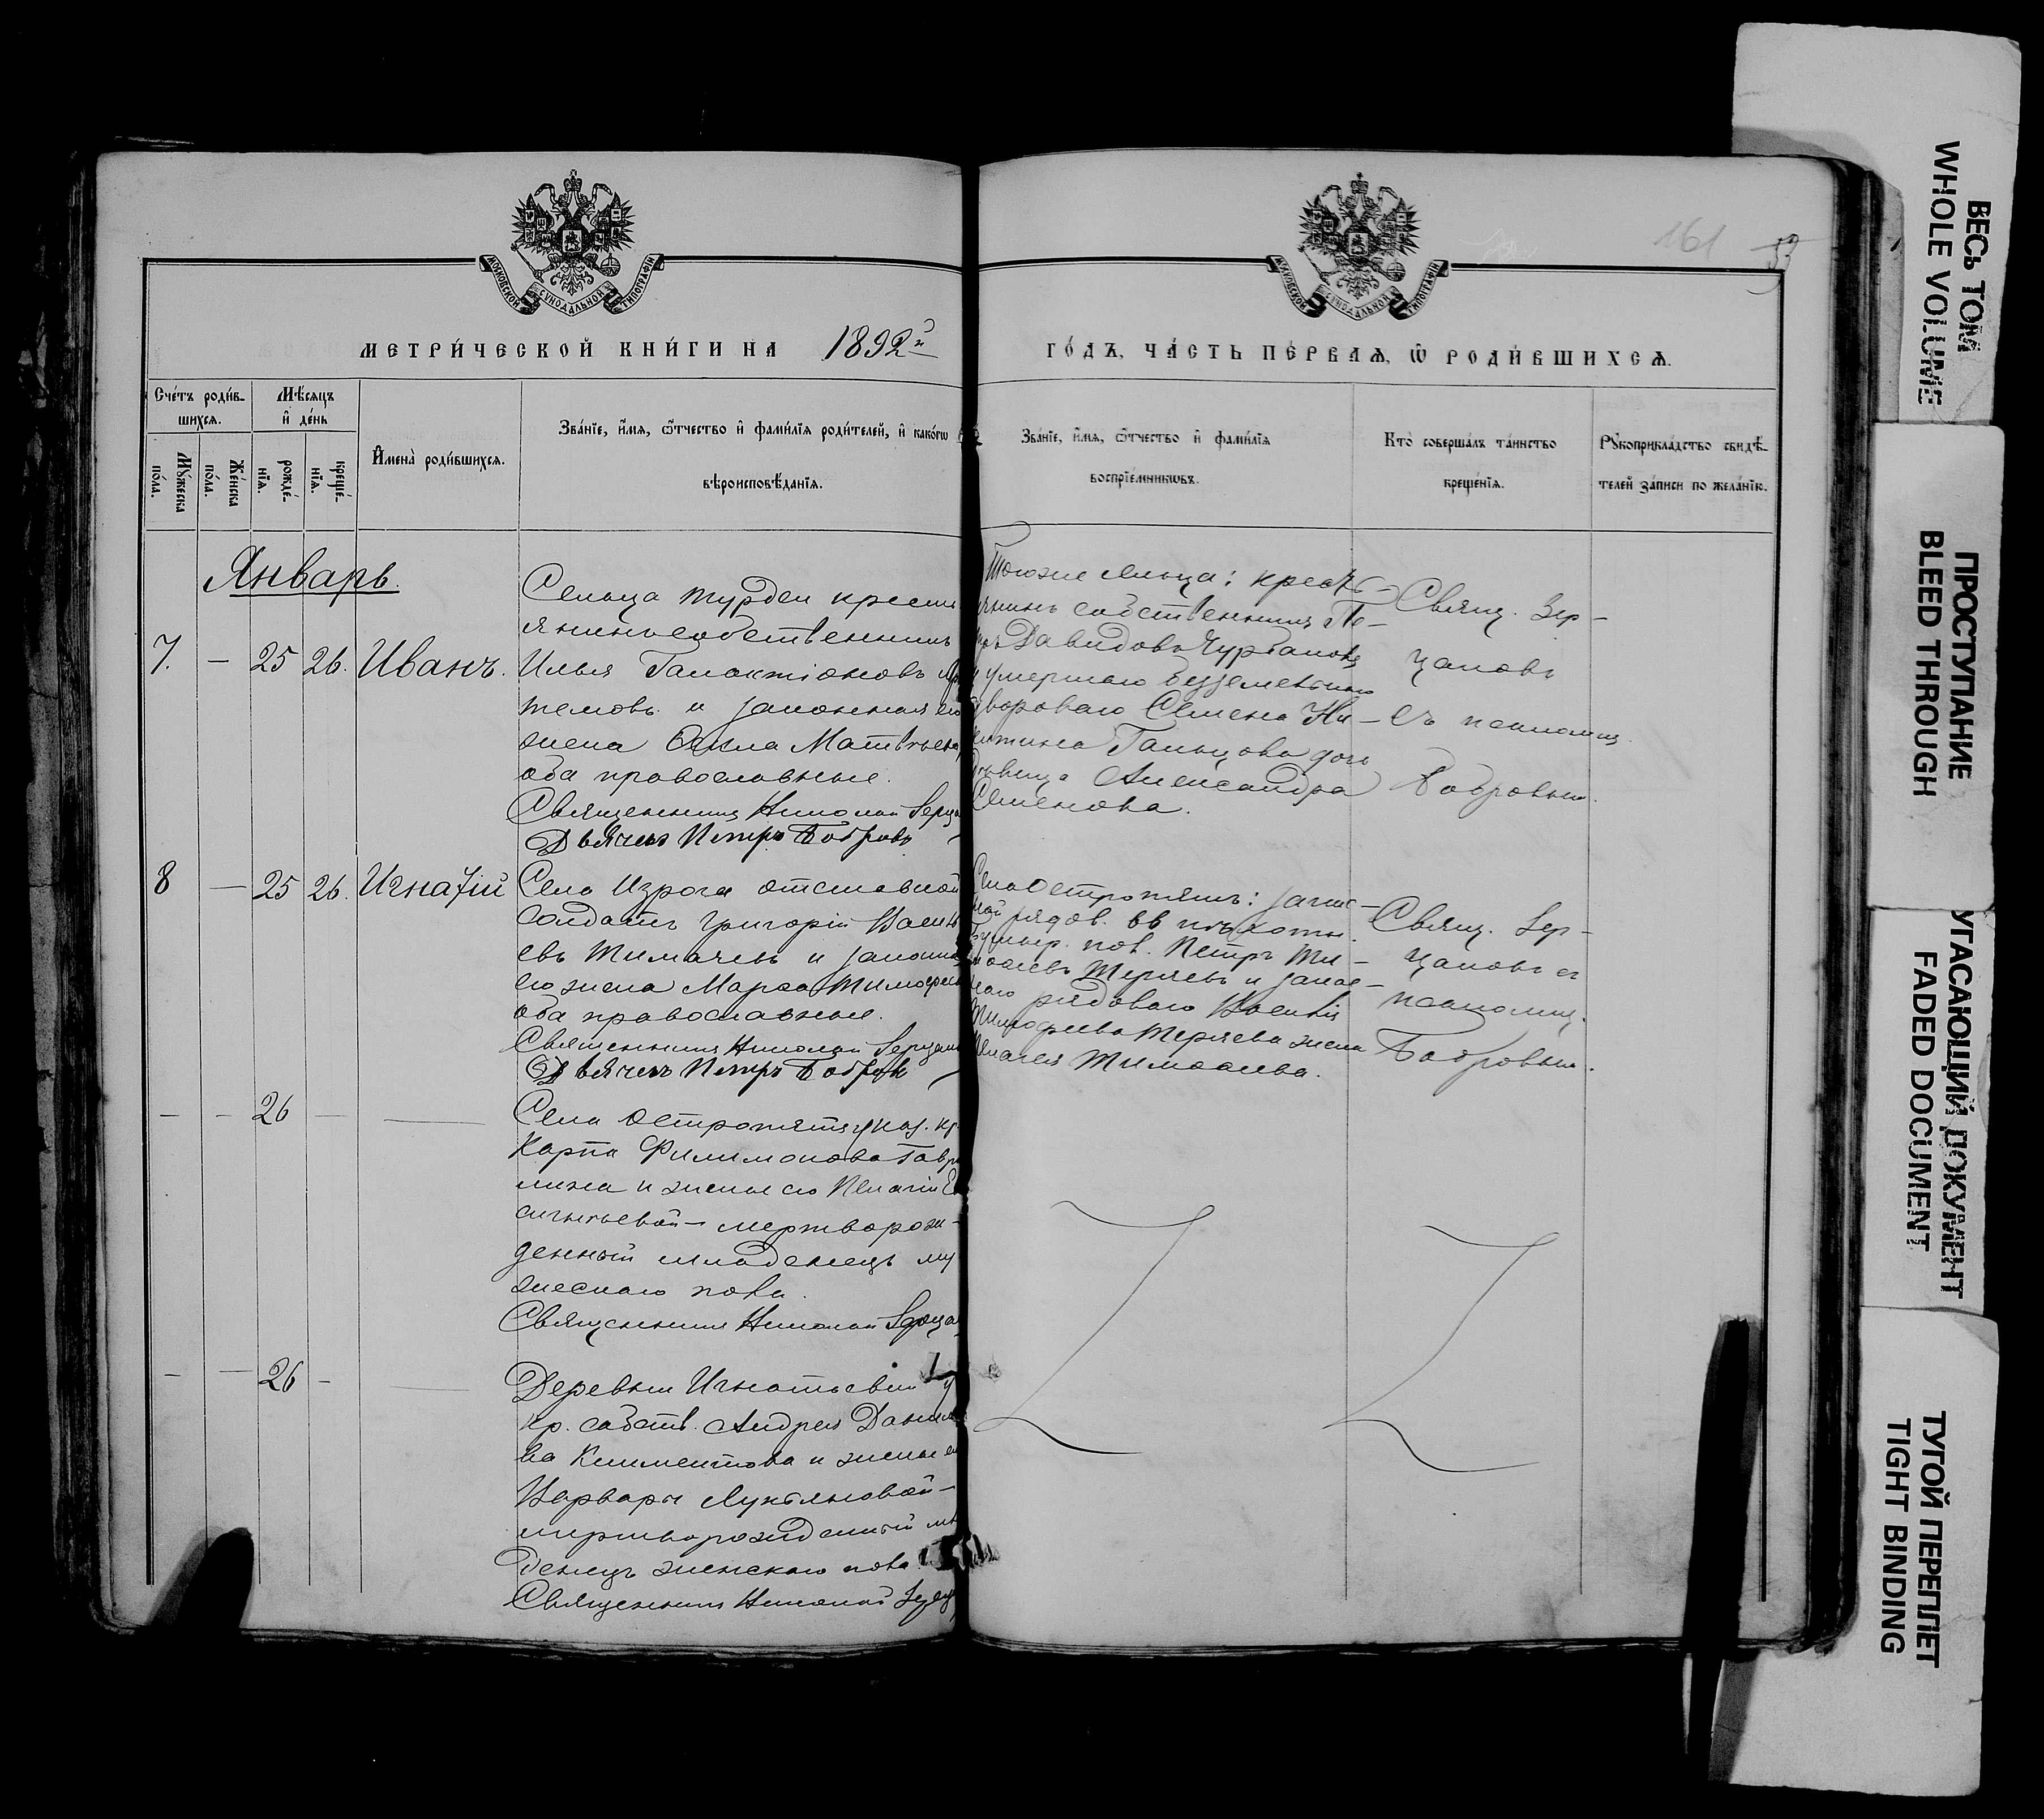 МОСКОВСКОЙ СУНОДАЛЬНОЙ ТИПОГРАФІИ
МОСКОВСКОЙ СУНОДАЛЬНОЙ ТИПОГРАФІИ
161
МЕТРИ́ЧЕСКОЙ КНИ́ГИ НА 1892й
ГО́ДЪ, ЧА́СТЬ ПЕ́РВАѦ, Ѿ РОДИ́ВШИХСѦ.
Сче́тъ роди́в-
шихсѧ.
Мѣ́сѧцъ
и҆ де́нь
Мꙋ́жеска
по́ла.
Же́нска
по́ла.
рожде́-
нїѧ.
креще́-
нїѧ.
И҆мена̀ роди́вшихсѧ.
Зва́нїе, и҆́мѧ, ѻ҆́тчество и҆ фами́лїѧ роди́телей, и҆ како́гѡ
вѣроисповѣ́данїѧ.
Зва́нїе, и҆́мѧ, ѻ҆́тчество и҆ фами́лїѧ
воспрїе́мникѡвъ.
Кто̀ соверша́лъ та́инство
креще́нїѧ.
Рꙋкоприкла́дство свидѣ́-
телей за́писи по жела́нїю.
Январь.
7. — 25 26. Иванъ.
Сельца Турдеи крестья
янинъ собственникъ
Илья Галактіоновъ Ар
темовъ и законная его
жена Матвѣева
оба православные.
Священникъ Николай Зерца
Дьячекъ Петръ Бобровъ
Тогоже сельца: кресть-
янинъ собственникъ Пе-
тръ Давидовъ
и умершаго безземельнаго
двороваго Семена Ни-
китина дочь
дѣвица Александра
Семенова.
Свящ. Зер-
цаловъ
съ псаломщ.
Бобровым.
8 — 25 26. Игнатій
Села Изрога отставной
солдатъ Григорій Василь
евъ Тимачевъ и законная
его жена Марѳа Тимофеев
оба православные.
Священникъ Николай Зерцало
Дьячекъ Петръ Бобровъ
Села Остропятъ: запас-
ной рядов. въ пѣхоты
Петръ Ти-
моѳеевъ Теряевъ и запас-
наго рядоваго Василія
Тимофеева Теряева жена
Пелагея Тимоѳеева.
Свящ. Зер-
цаловъ съ
псаломщ.
Бобровым.
— — 26 — —
Села Остропятъ кр.
Карпа Филимонова Гаври
лина и жены его Пелагіи
мертворож-
денный младенецъ му
жескаго пола.
Священникъ Николай Зерца
— — 26 — —
Деревни Игнатьевки
кр. собств. Андрея Данило
ва Климентова и жены ег
Варвары Лукьяновой—
мертворожденный мла
денецъ женскаго пола.
Священникъ Николай Зерц
ВЕСЬ ТОМ
WHOLE VOLUME
ПРОСТУПАНИЕ
BLEED THROUGH
УГАСАЮЩИЙ ДОКУМЕНТ
FADED DOCUMENT
ТУГОЙ ПЕРЕПЛЕТ
TIGHT BINDING